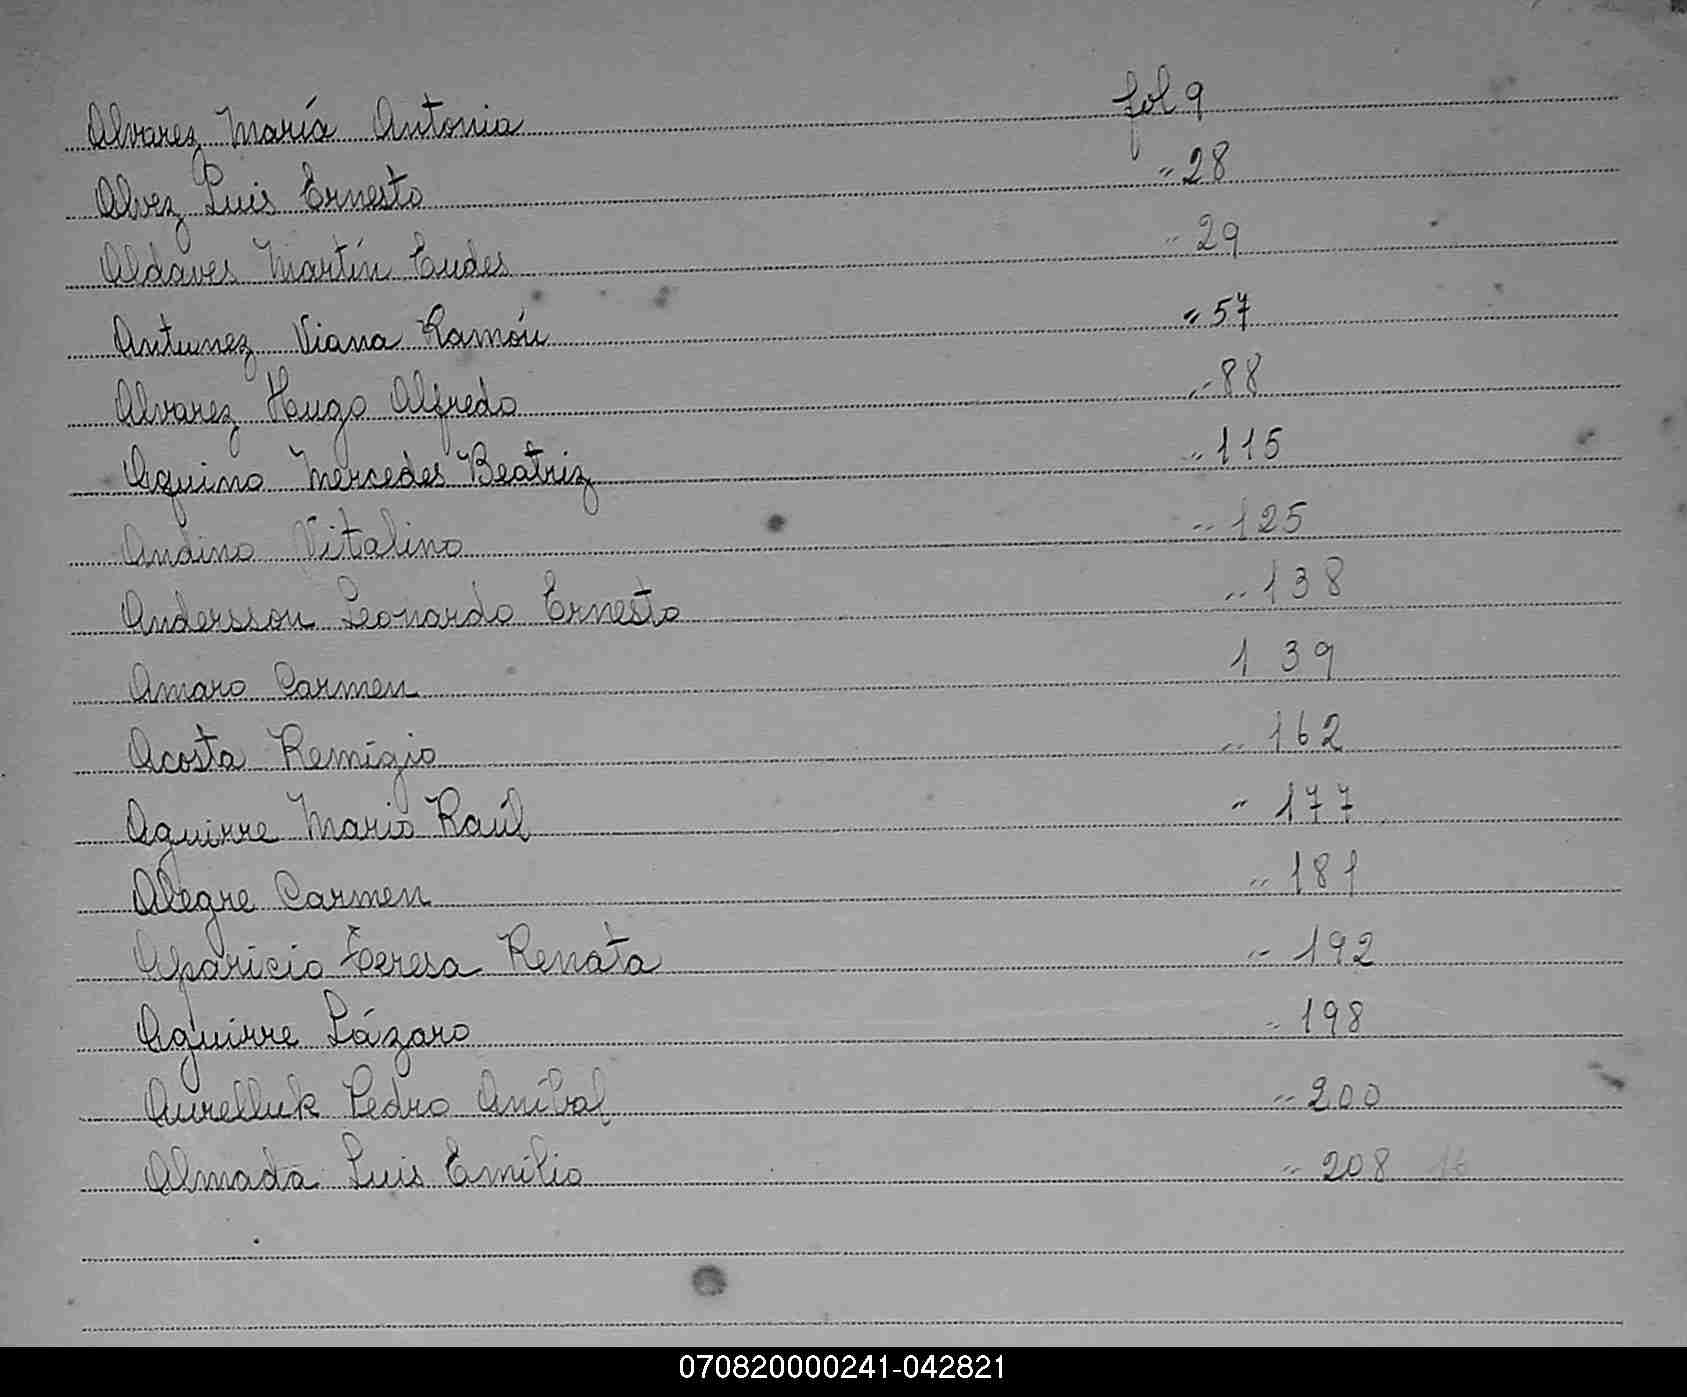 Alvarez María Antonia fol 9
Alvez Luis Ernesto " 28
Aldaves Martín Eudes " 29
Antunez Viana Ramón " 57
Alvarez Hugo Alfredo " 88
Aquino Mercedes Beatriz " 115
Andino Vitalino " 125
Andersson Leonardo Ernesto " 138
Amaro Carmen 139
Acosta Remigio " 162
Aguirre Mario Raúl " 177
Alegre Carmen " 181
Aparicio Teresa Renata " 192
Aguirre Lázaro " 198
Aurelluk Pedro Aníbal " 200
Almada Luis Emilio " 208
070820000241-042821